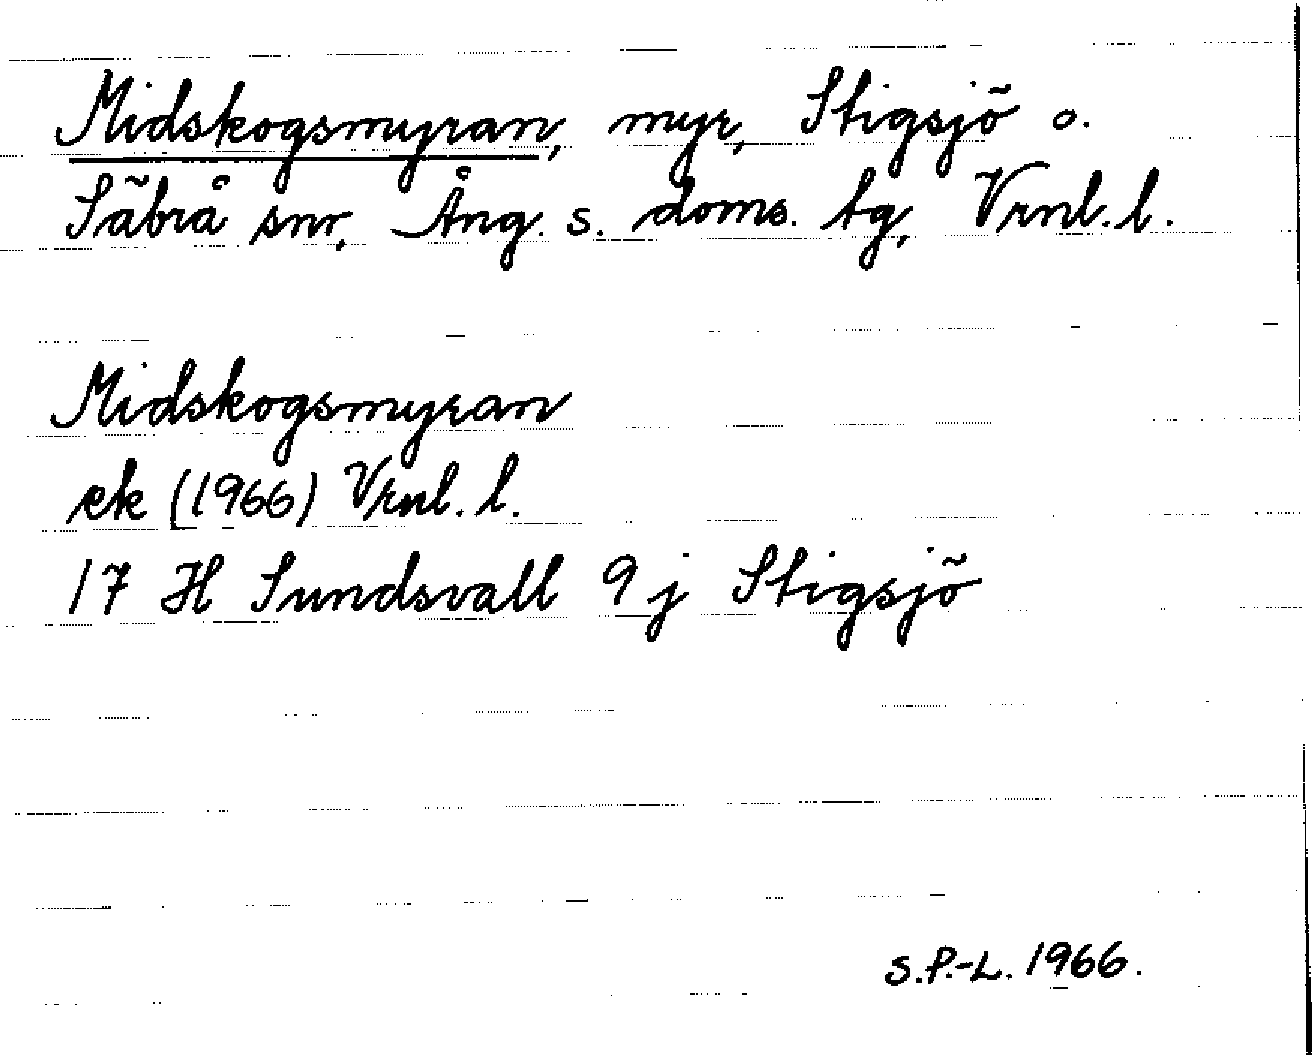 Midskogsmyran, myr, Stigsjö o.
Säbrå snr, Ång. s. doms. tg, Vrnl. l.
Midskogsmyran
ek (1966) Vrnl. l.
17 H Sundsvall 9 j Stigsjö
S.P.-L. 1966.